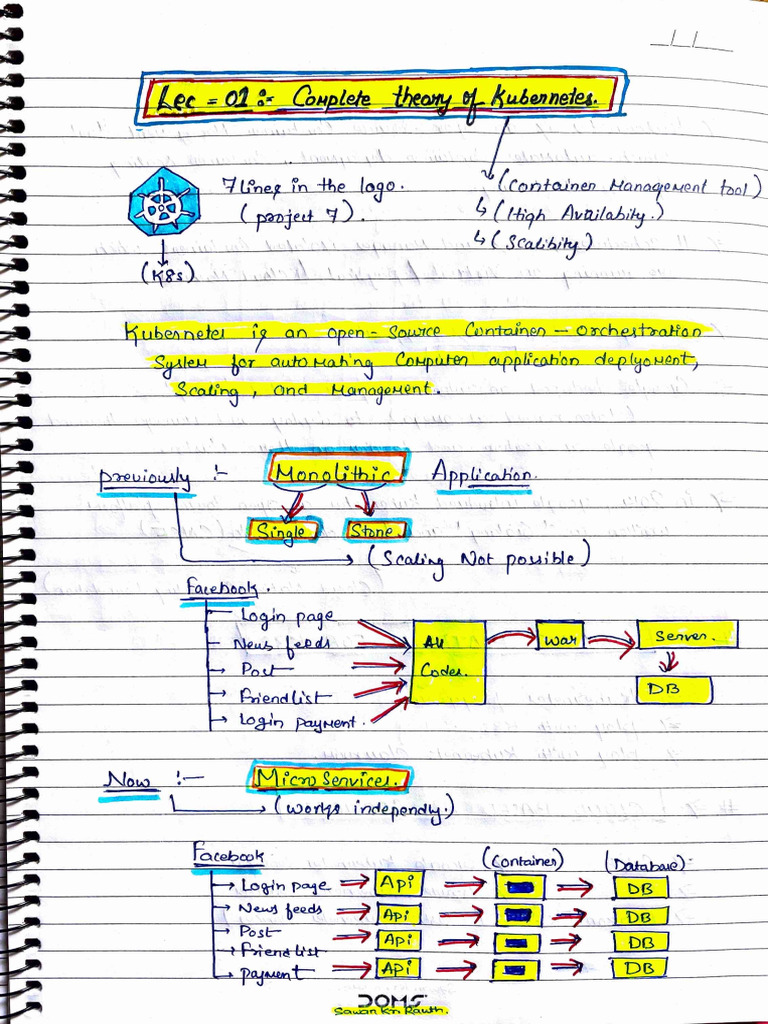 Lec = 01 :- Complete theory of Kubernetes.
7 lines in the logo.
(project 7).
(K8s)
(Container Management tool)
(High Availabity.)
(Scalibity)
Kubernetes is an open-Source Container-Orchestration
System for automating Computer application deplyoment,
Scaling, and Management.
previously :- Monolithic Application.
Single Stone
(Scaling Not possible)
Facebook.
Login page
News feeds
Post
Friendlist
Login payment.
All
Codes.
war
Server.
DB
Now :- MicroServices.
(works independly.)
Facebook (Container) (Database)
Login page Api DB
News feeds Api DB
Post Api DB
friendlist
payment Api DB
DOMS
Sawan Kr Rauth.